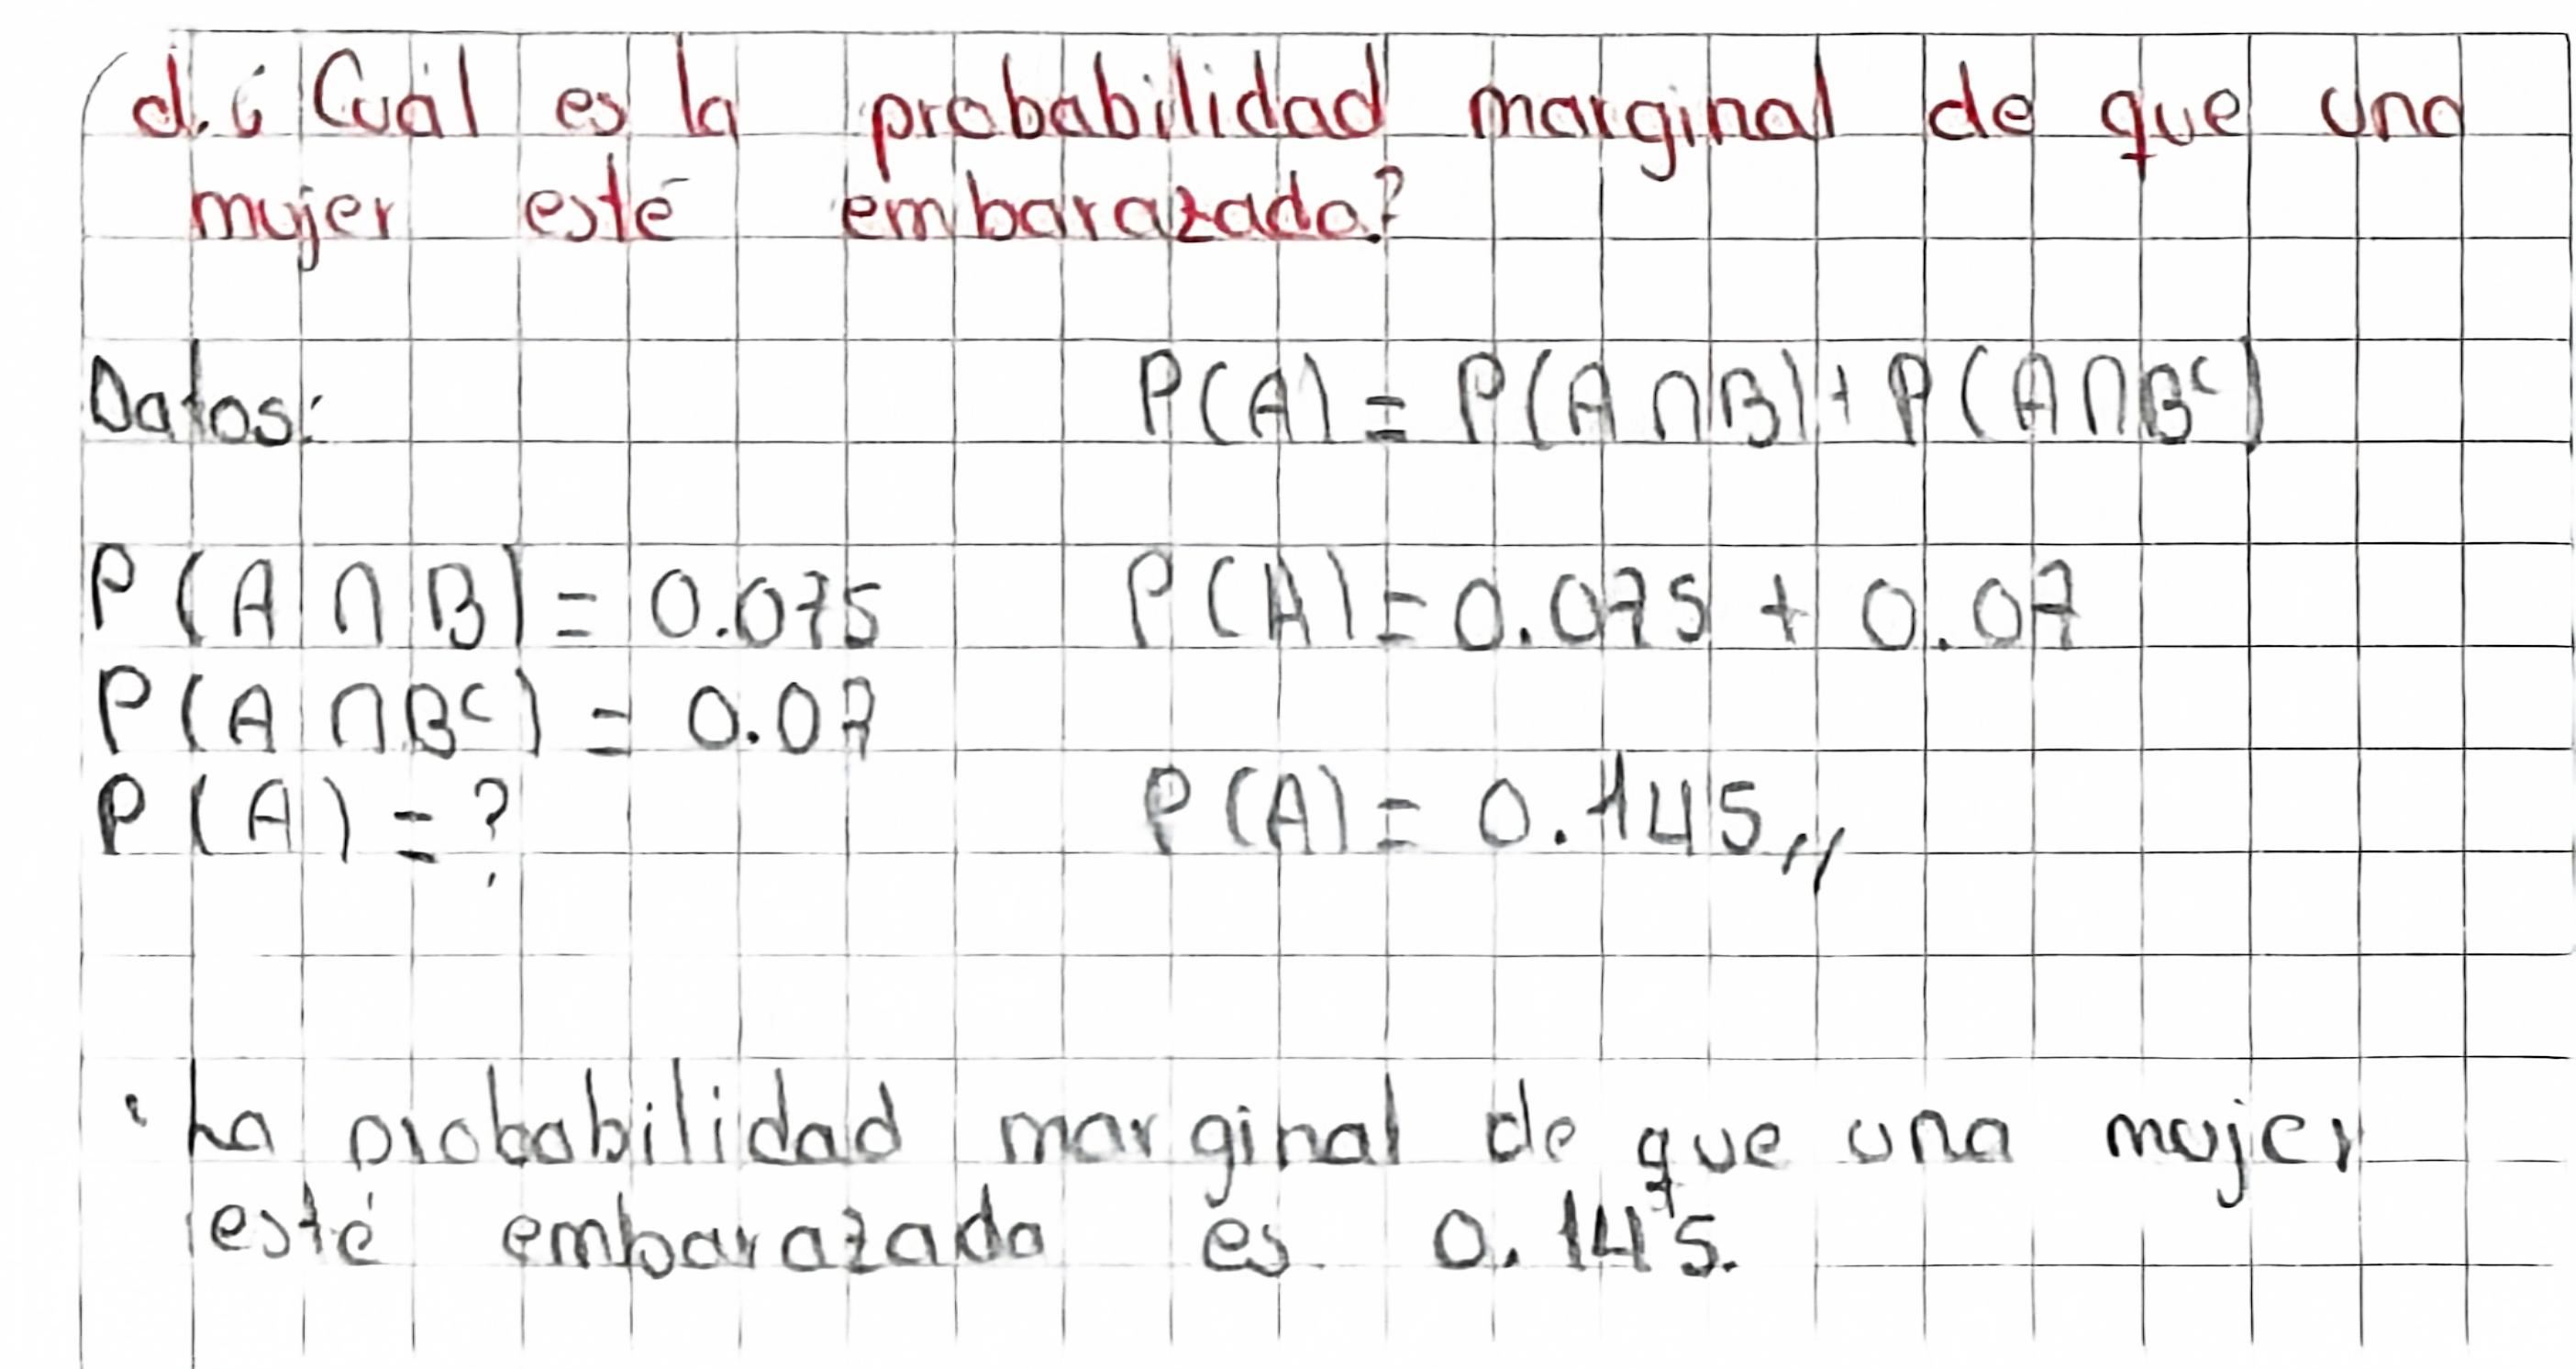 d. ¿Cuál es la probabilidad marginal de que una
mujer esté embarazada?
Datos:
P(A) = P(A∩B) + P(A∩Bᶜ)
P(A∩B) = 0.075
P(A) = 0.075 + 0.07
P(A∩Bᶜ) = 0.07
P(A) = ?
P(A) = 0.145,,
· La probabilidad marginal de que una mujer
esté embarazada es 0.145.